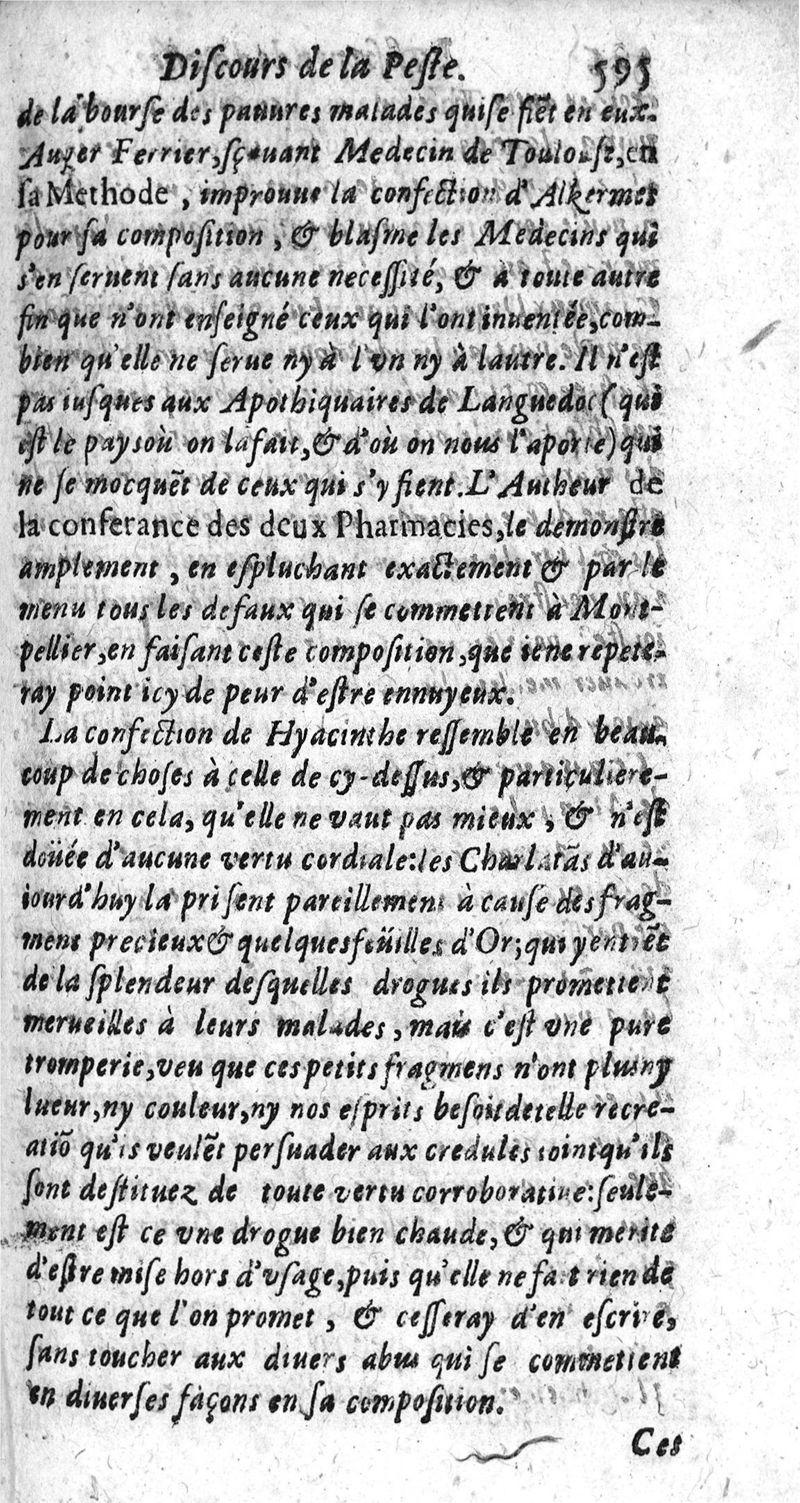 Diſcours de la Peſte. 595
de la bourſe des pauures malades qui ſe fiẽt en eux.
Auger Ferrier, ſçauant Medecin de Toulouſe, en
ſa Methode, improuue la confection d'Alkermes
pour ſa compoſition, & blaſme les Medecins qui
s'en ſeruent ſans aucune neceſſité, & à toute autre
fin que n'ont enſeigné ceux qui l'ont inuentée, com-
bien qu'elle ne ſerue ny à l'vn ny à lautre. Il n'eſt
pas iuſques aux Apothiquaires de Languedoc (qui
eſt le pays où on la fait, & d'où on nous l'aporte) qui
ne ſe mocquẽt de ceux qui s'y fient. L'Autheur de
la conferance des deux Pharmacies, le demonſtre
amplement, en eſpluchant exactement & par le
menu tous les defaux qui ſe commettent à Mont-
pellier, en faiſant ceſte compoſition, que ie ne repete-
ray point icy de peur d'eſtre ennuyeux.
La confection de Hyacinthe reſſemble en beau-
coup de choſes à celle de cy-deſſus, & particuliere-
ment en cela, qu'elle ne vaut pas mieux, & n'eſt
doüée d'aucune vertu cordiale: les Charlatãs d'au-
iourd'huy la priſent pareillement à cauſe des frag-
mens precieux & quelques feüilles d'Or; qui y entrẽt
de la ſplendeur deſquelles drogues ils promettent
merueilles à leurs malades, mais c'eſt vne pure
tromperie, veu que ces petits fragmens n'ont plus ny
lueur, ny couleur, ny nos eſprits beſoit de telle recre-
atiõ qu'is veulẽt perſuader aux credules ioint qu'ils
ſont deſtituez de toute vertu corroboratiue: ſeule-
ment eſt ce vne drogue bien chaude, & qui merite
d'eſtre miſe hors d'vſage, puis qu'elle ne fait rien de
tout ce que l'on promet, & ceſſeray d'en eſcrire,
ſans toucher aux diuers abus qui ſe commettent
en diuerſes façons en ſa compoſition.
Ces